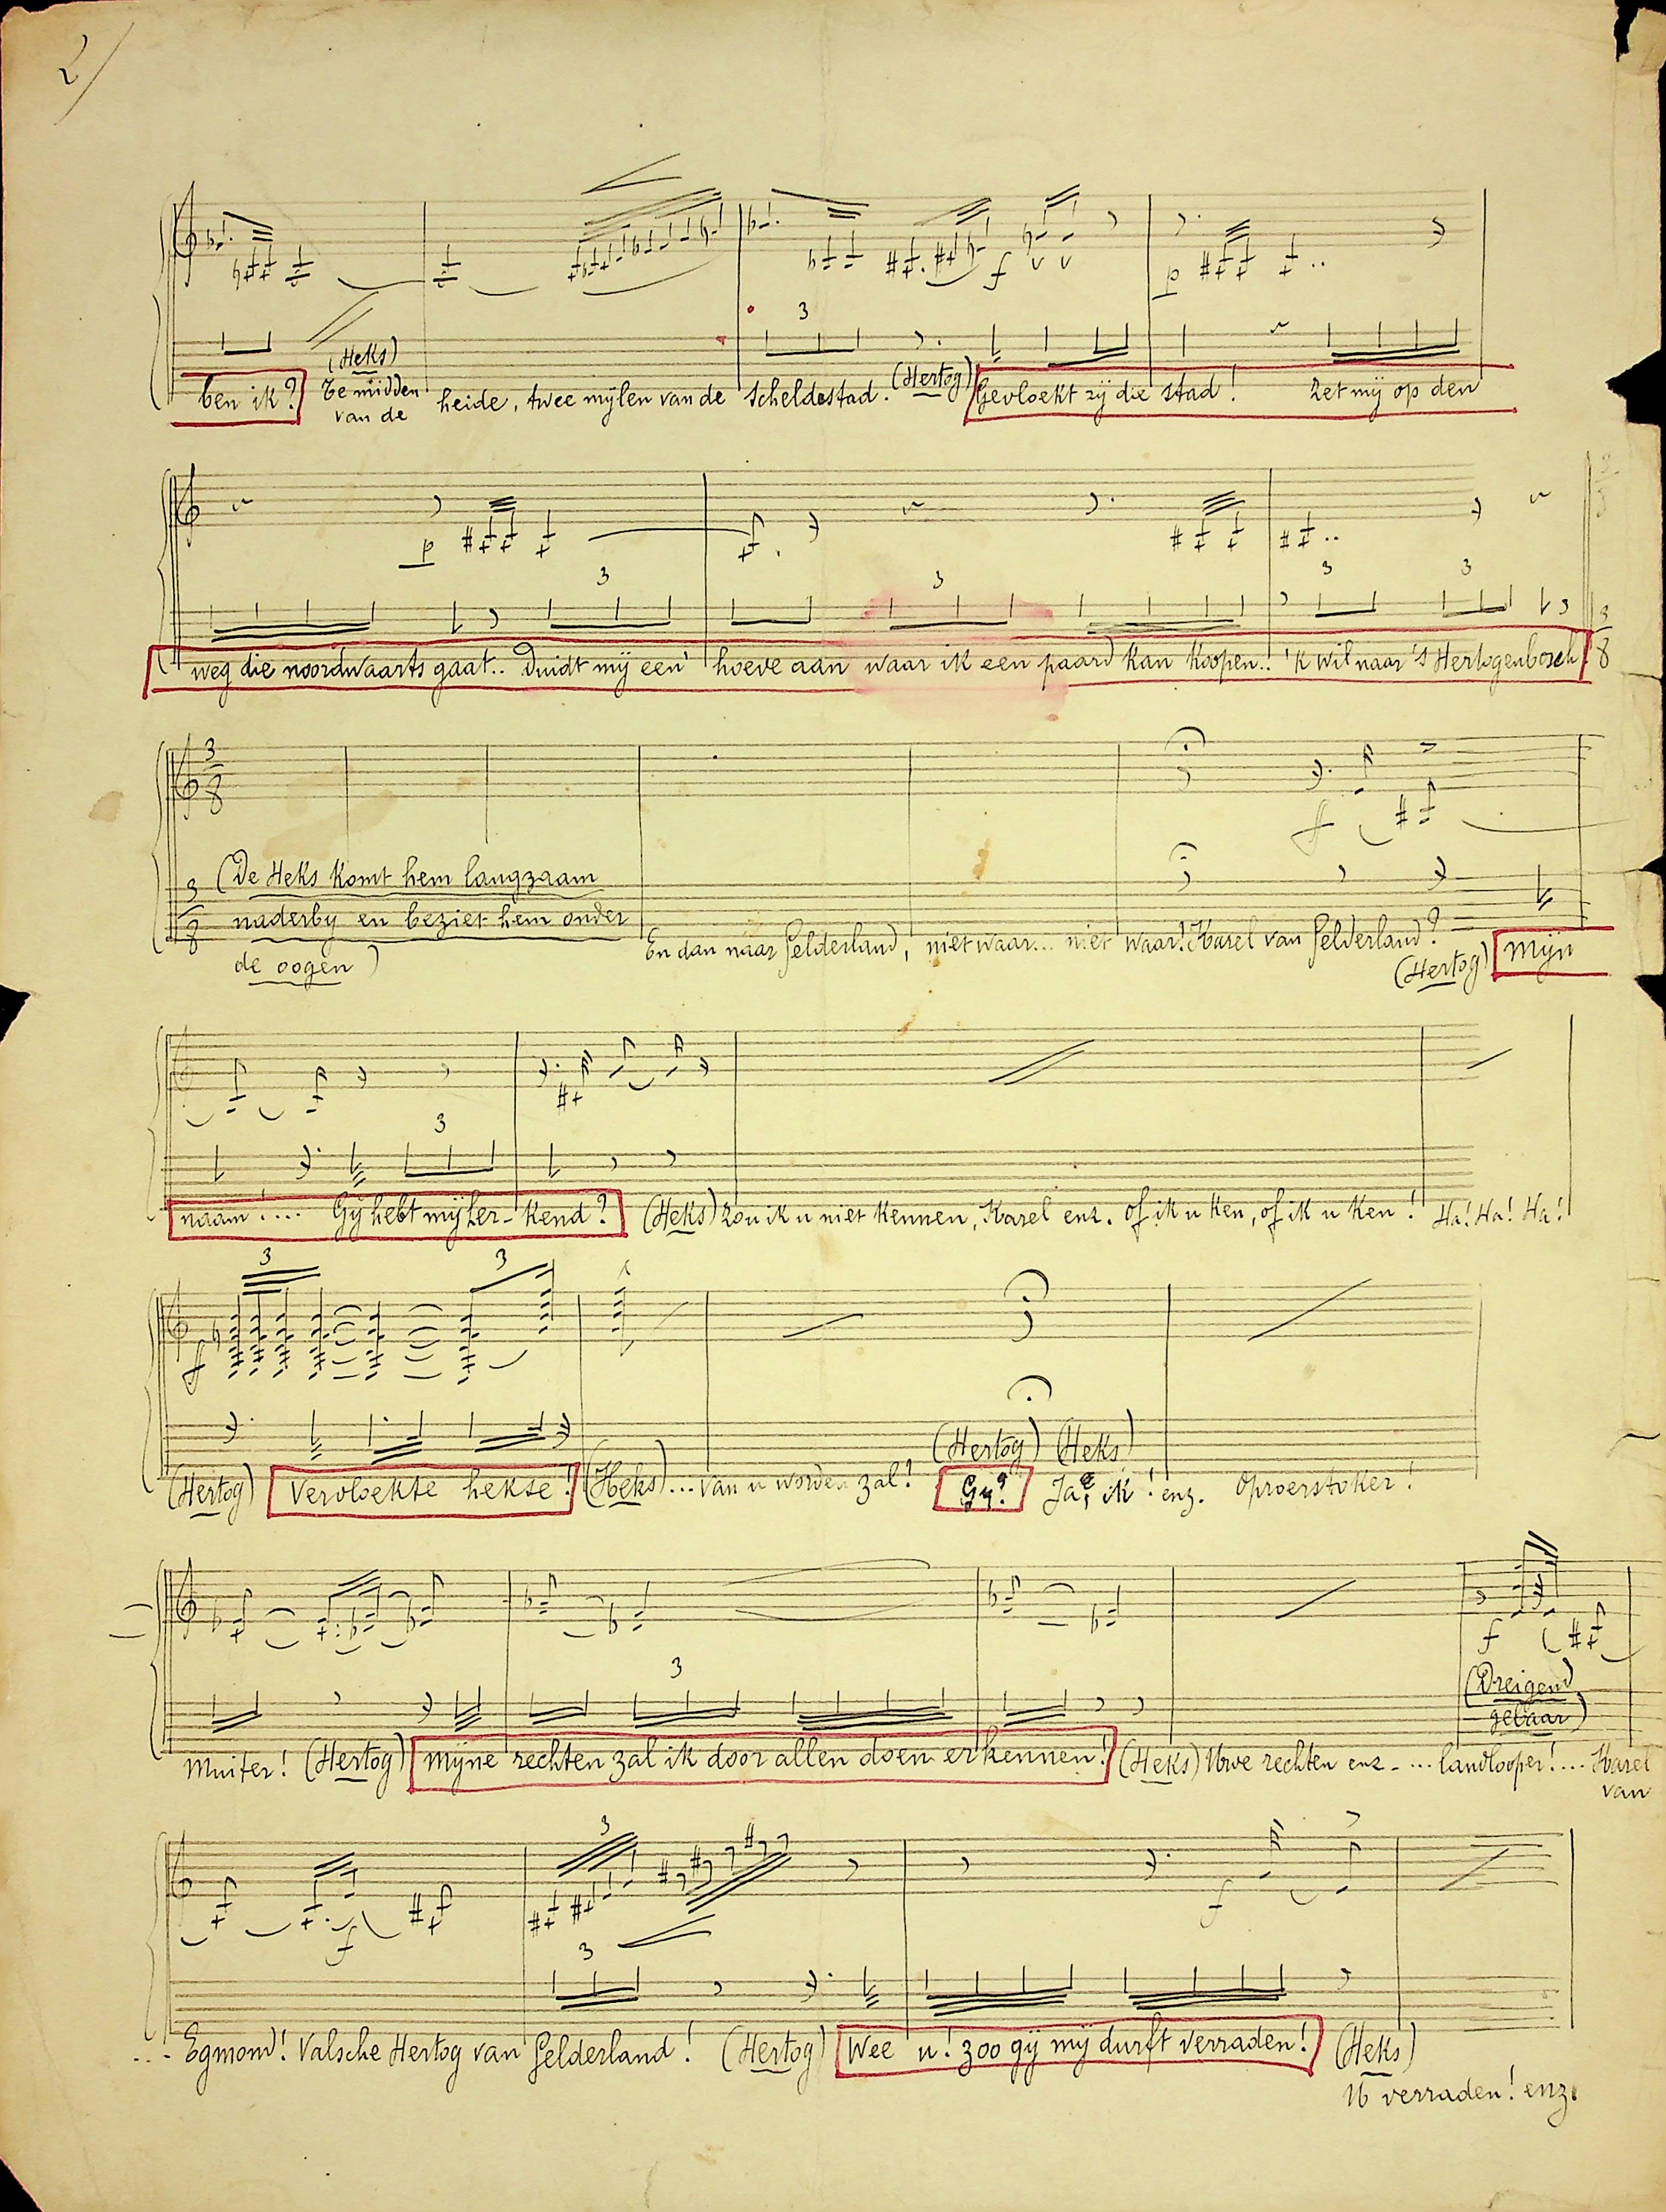 2/
3
(Heks)
ben ik? Te midden heide, twee mijlen van de Scheldestad. (Hertog) Gevloekt zij die stad! Zet mij op den
van de
p
3 3 3 3
weg die noordwaarts gaat.. Duidt mij een' hoeve aan waar ik een paard kan koopen.. 'k wil naar 's Hertogenbosch
3/8
3/8
(De Heks komt hem langzaam
naderby en beziet hem onder
de oogen)
En dan naar Gelderland, niet waar... niet waar! Karel van Gelderland?
(Hertog) Mijn
3
naam!.... Gij hebt mij her-kend? (Heks) Zou ik u niet kennen, Karel enz. of ik u ken, of ik u ken! Ha! Ha! Ha!
3 3
f
(Hertog) Vervloekte hekse! (Heks)... van u worden zal? (Hertog) Gy? (Heks) Ja, ik! enz. Oproerstoker!
f
3
(Dreigend
gebaar)
Muiter! (Hertog) Mijne rechten zal ik door allen doen erkennen! (Heks) Uwe rechten enz-... landlooper!... Karel
van
3
f
f
3
... Egmond! Valsche Hertog van Gelderland! (Hertog) Wee u! zoo gij mij durft verraden! (Heks)
U verraden! enz.